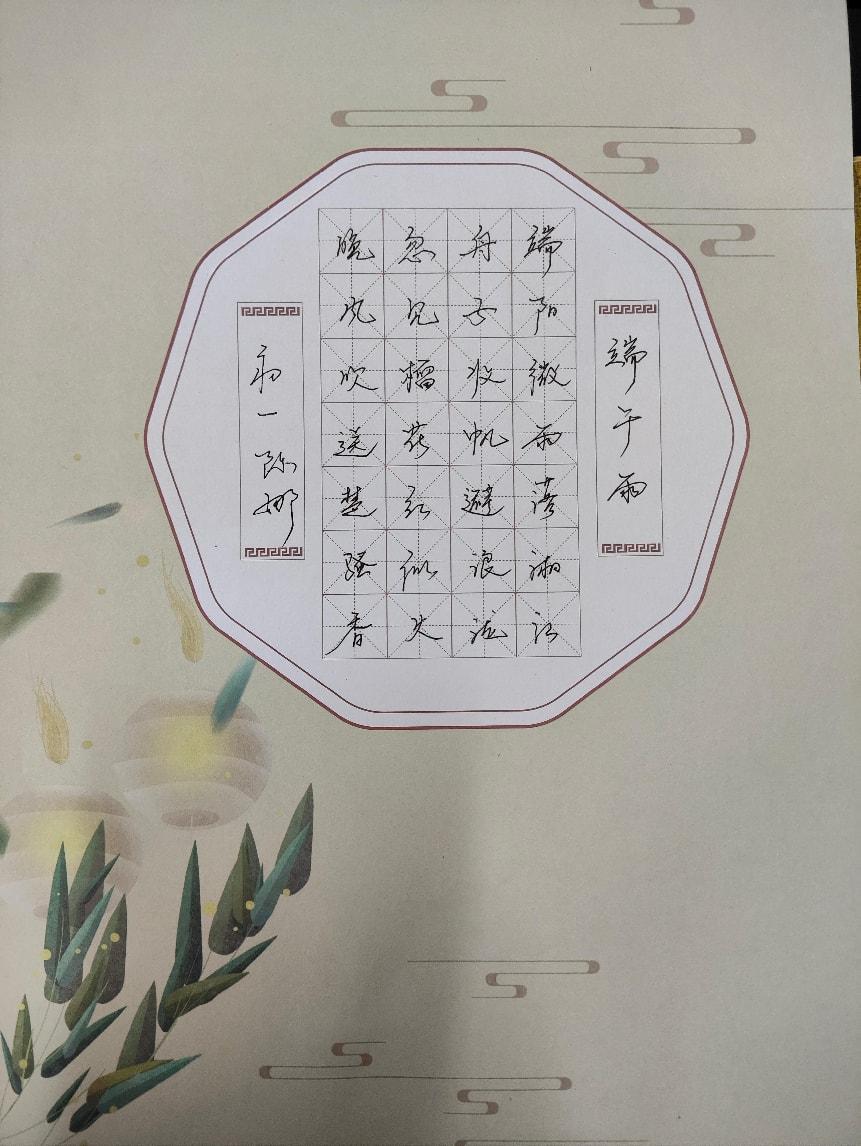 端午雨
端阳微雨落湘江
舟子收帆避浪泷
忽见榴花红似火
晚风吹送楚骚香
初一 陈娜